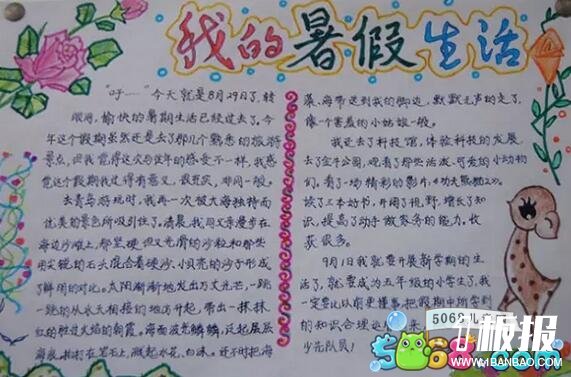 我的暑假生活
“吁……”今天就是8月29日了,转
眼间,愉快的暑期生活已经过去了。今
年这个假期虽然还是去了那几个熟悉的旅游
景点,但我觉得这次与往年的感受不一样,我感
觉这个假期我过得有意义、很充实,非同一般。
去青岛游玩时,我再一次被大海独特而
优美的景色所吸引住了。清晨,我同父亲漫步在
海边沙滩上,那坚硬但又光滑的沙粒和那些
用尖锐的石头混合着硬沙、小贝壳的沙子形成
了鲜明的对比。太阳渐渐地发出万丈光芒,一跳
一跳的从水天相接的地方升起,带出一抹抹
红的胜过火焰的朝霞,海面波光鳞鳞,泛起层层
海浪,拍打在岩石上,溅起水花、白沫。还不时把海
藻、海带送到我的脚边,默默无声的走了,
像个害羞的小姑娘一般。
我还去了科技馆,体验科技的发展,
去了金牛公园,观看了那些活泼、可爱的小动物
们。看了一场精彩的影片《功夫熊猫2》。
读了三本好书,开阔了视野,增长了知
识,提高了动手做家务的能力。收
获很多。
9月1日我就要开展新学期的生
活了,就要成为五年级的小学生了,我
一定要比以前更懂事,把假期中所学到
的知识合理运
来
少先队员!
5068儿童
5068.com
板报
WWW.1BANBAO.COM